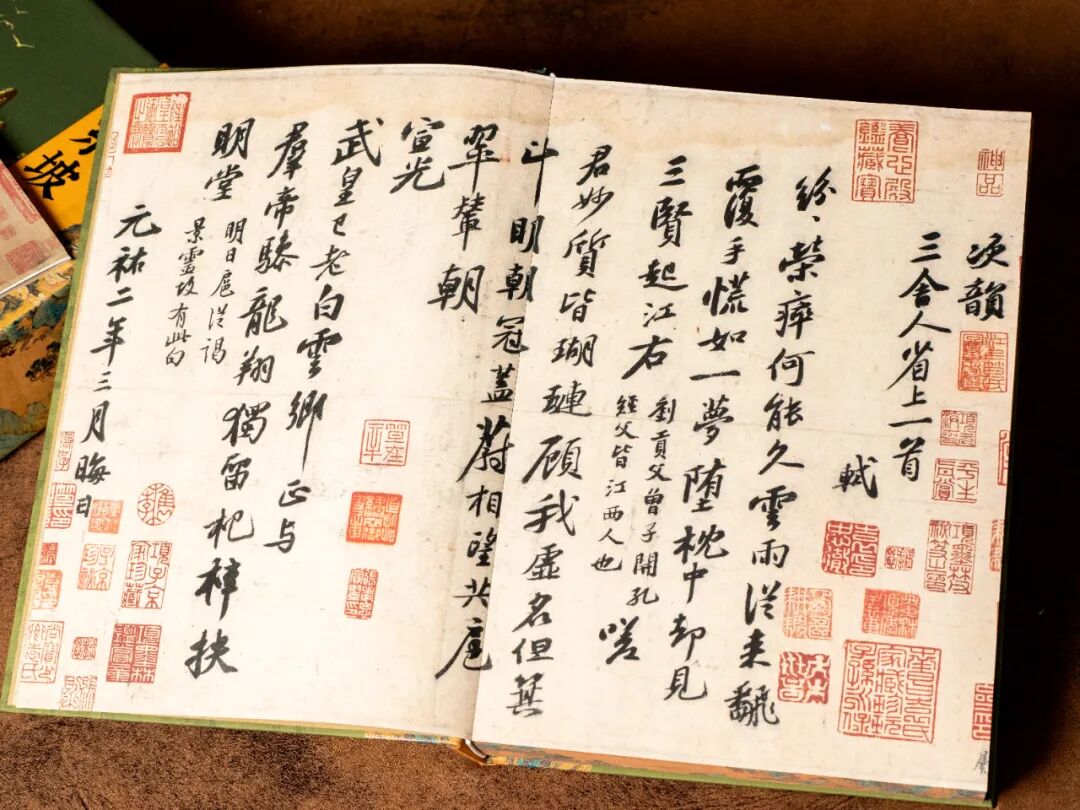 神品
養心殿鑑藏寶
次韻
三舍人省上一首
軾
紛〻榮瘁何能久雲雨從来飜
覆手慌如一夢堕枕中却見
三賢起江右
劉貢父曾子開孔
經父皆江西人也
嗟
君妙質皆瑚璉顧我虛名但箕
斗明朝冠蓋蔚相望共扈
翠輦朝
宣光
武皇已老白雲鄉正与
羣帝驂龍翔獨留杞梓扶
明堂
明日扈從謁
景靈故有此句
元祐二年三月晦日
項子京家珍藏
項墨林鑑賞章
坡